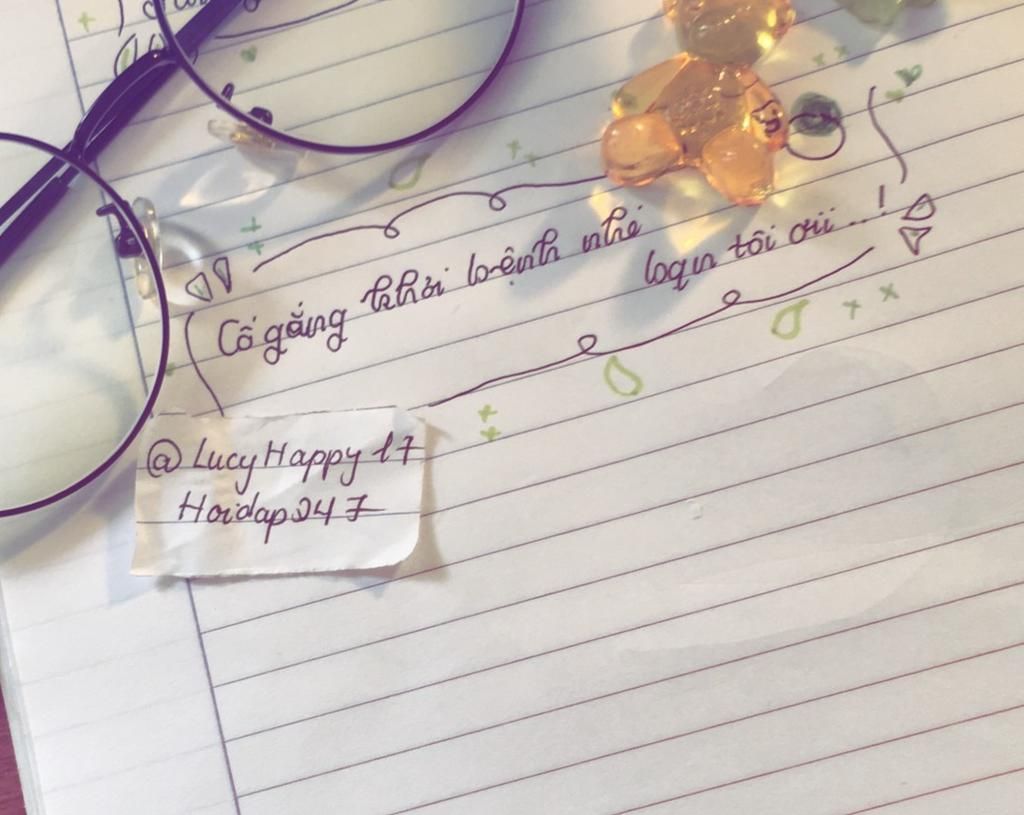 Cố gắng khỏi bệnh nhé
loqn tôi ơii...!
@LucyHappy17
Hoidap247